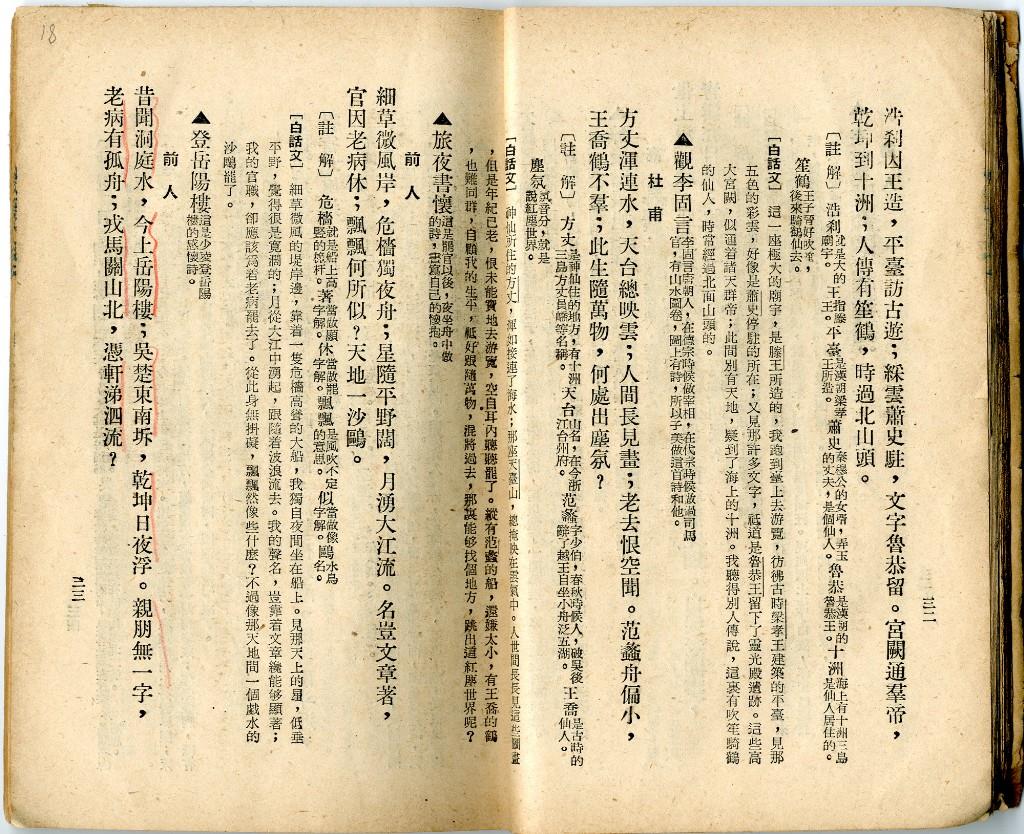 浩刹因王造，平臺訪古遊；綵雲蕭史駐，文字魯恭留。宮闕通羣帝，
乾坤到十洲；人傳有笙鶴，時過北山頭。
〔註　解〕浩刹就是大的廟宇。王指滕王。平臺是漢朝梁孝王所造。蕭史秦穆公的女壻，弄玉的丈夫，是個仙人。魯恭是漢朝的魯恭王。十洲海上有十洲三島是仙人居住的。
笙鶴王子晉好吹笙，後來騎鶴仙去。
〔白話文〕這一座極大的廟宇，是滕王所造的，我跑到臺上去游覽，彷彿古時梁孝王建築的平臺，見那
五色的彩雲，好像是蕭史停駐的所在；又見那許多文字，祗道是魯恭王留下了靈光殿遺跡。這些高
大宮闕，似通着諸天群帝；此間別有天地，疑到了海上的十洲。我聽得別人傳說，這裏有吹笙騎鶴
的仙人，時常經過北面山頭的。
▲觀李固言李固言唐朝人，在德宗時候做宰相，在代宗時候放過司馬官，有山水圖卷，圖上有詩，所以子美做這首詩和他。
杜　甫
方丈渾連水，天台總映雲；人間長見畫；老去恨空聞。范蠡舟偏小，
王喬鶴不羣；此生隨萬物，何處出塵氛？
〔註　解〕方丈是神仙住的地方，有十洲三島方丈員嶠等名稱。天台山名，在今浙江台州府。范蠡字少伯，春秋時候人，破吳後辭了越王自坐小舟泛五湖。王喬是古時的仙人。
塵氛氛音分，就是說紅塵世界。
〔白話文〕神仙所住的方丈，渾如接連了海水；那座天臺山，總掩映在雲氣中。人世間長長見這些圖畫
，但是年紀已老，恨未能實地去游覽，空自耳內聽聽罷了。縱有范蠡的船，還嫌太小，有王喬的鶴
，也難同群，自顧我的生平，祗好跟隨萬物，混將過去，那裏能够找個地方，跳出這紅塵世界呢？
▲旅夜書懷這是罷官以後，夜坐舟中做的詩，書寫自己的懷抱。
前　人
細草微風岸，危檣獨夜舟；星隨平野闊，月湧大江流。名豈文章著，
官因老病休；飄飄何所似？天地一沙鷗。
〔註　解〕危檣就是船上高豎的桅杆。著當做顯字解。休當做罷字解。飄飄是風吹不定的意思。似當做像字解。鷗水鳥名。
〔白話文〕細草微風的堤岸邊，靠着一隻危檣高聳的大船，我獨自夜間坐在船上。見那天上的星，低垂
平野，覺得很是寬濶的；月從大江中湧起，跟隨着波浪流去。我的聲名，豈靠着文章纔能够顯著；
我的官職，卻應該為着老病罷去了。從此身無掛礙，飄飄然像些什麼？不過像那天地間一個戲水的
沙鷗罷了。
▲登岳陽樓這是少陵登岳陽樓的感懷詩。
前　人
昔聞洞庭水，今上岳陽樓；吳楚東南坼，乾坤日夜浮。親朋無一字，
老病有孤舟；戎馬關山北，憑軒涕泗流？
三二
三三
18